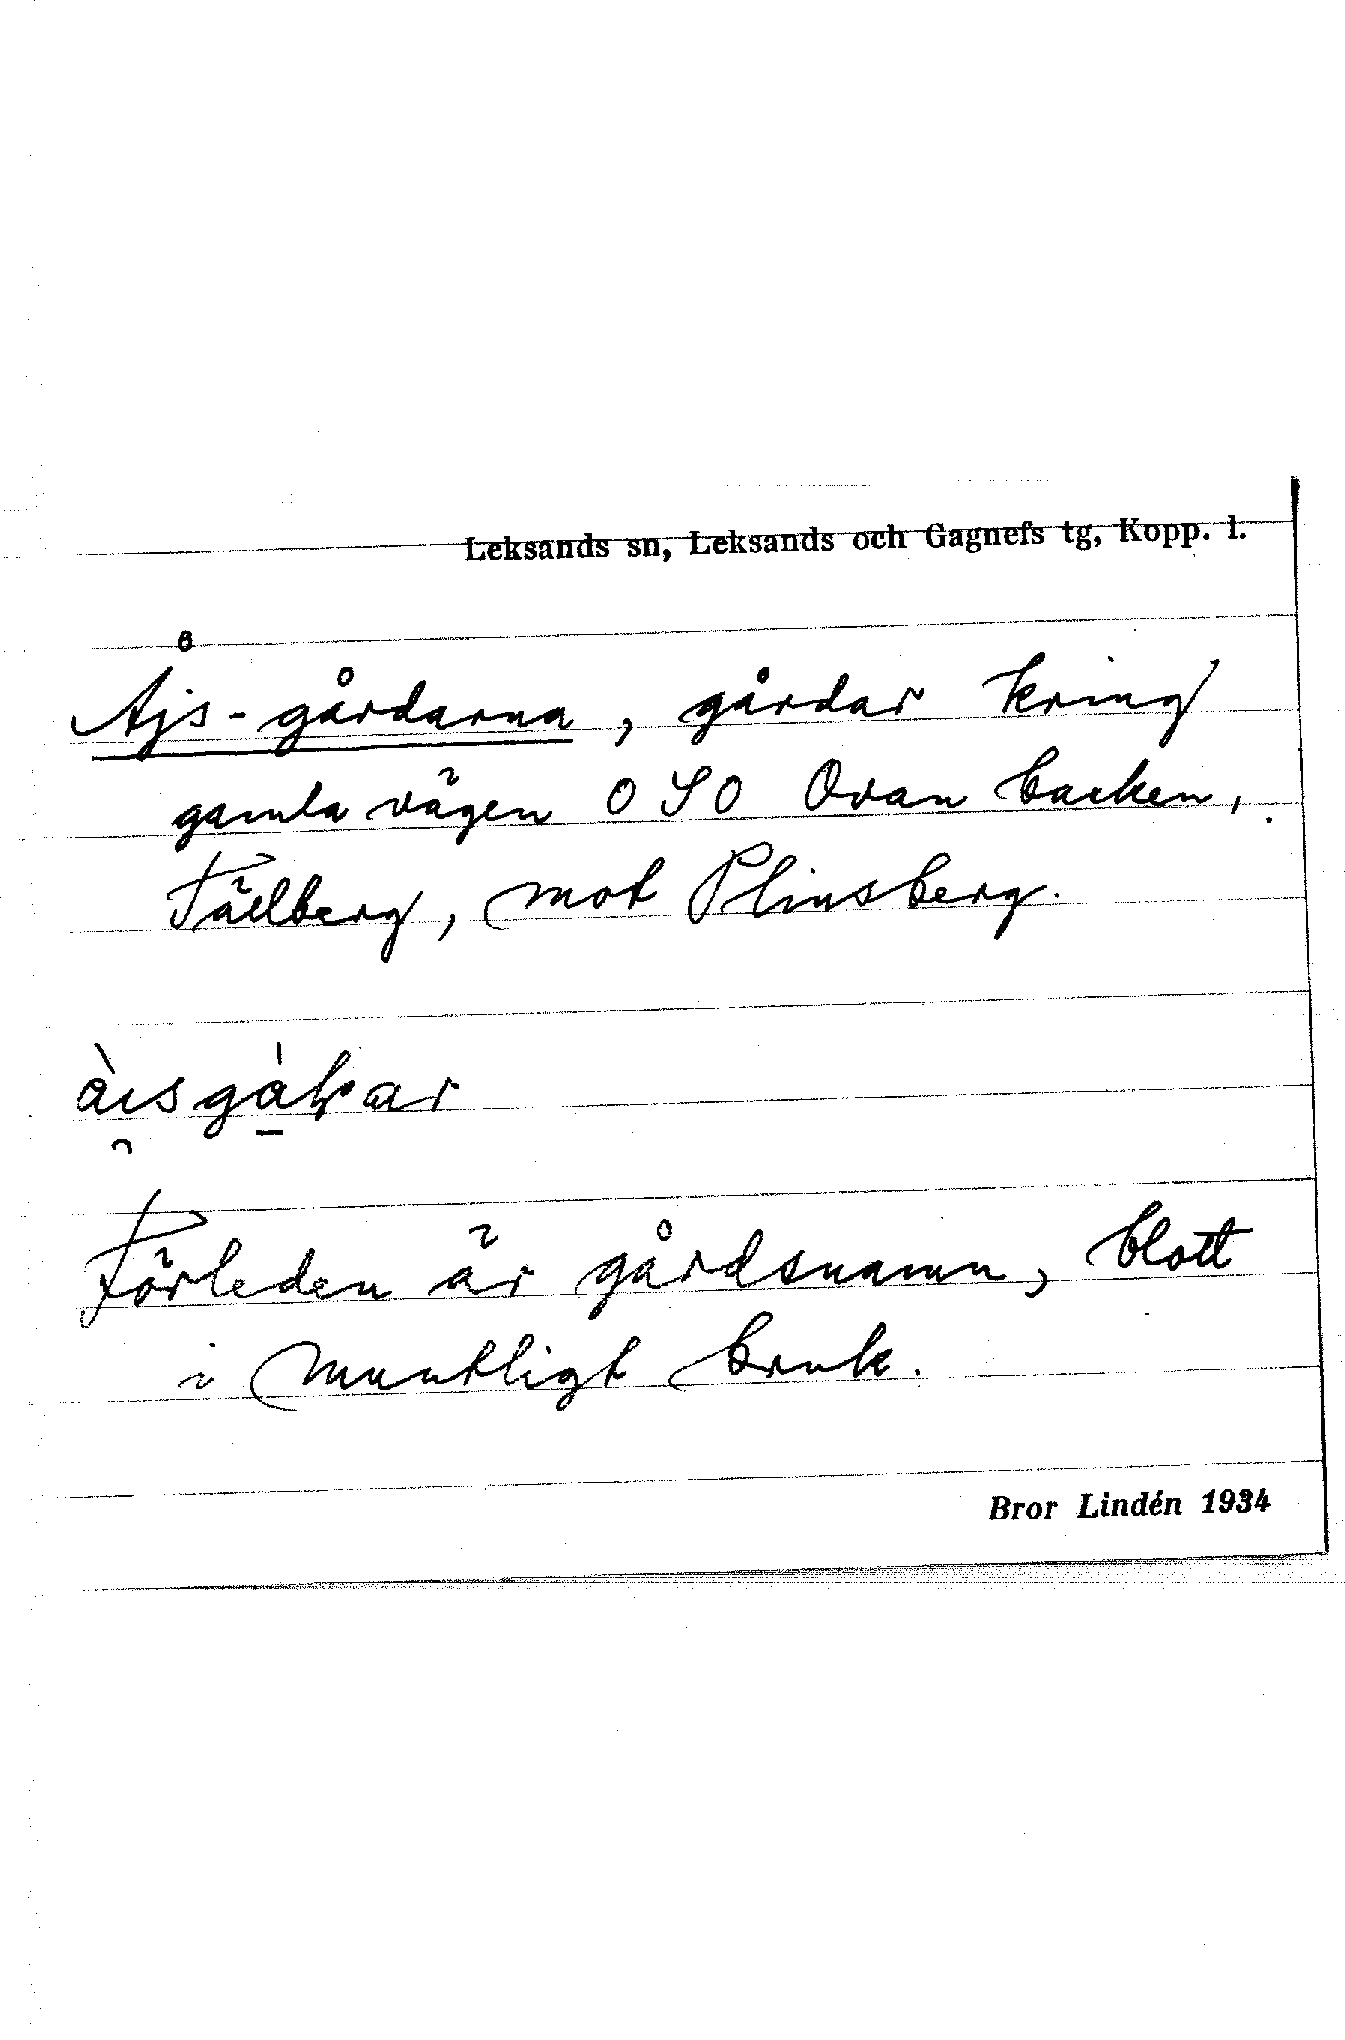 Leksands sn, Leksands och Gagnefs tg, Kopp. l.
Åjs-gårdarna, gårdar kring
gamla vägen OSO Ovan backen,
Tällberg, mot Plinsberg.
Förleden är gårdsnamn, blott
i muntligt bruk.
Bror Lindén 1934